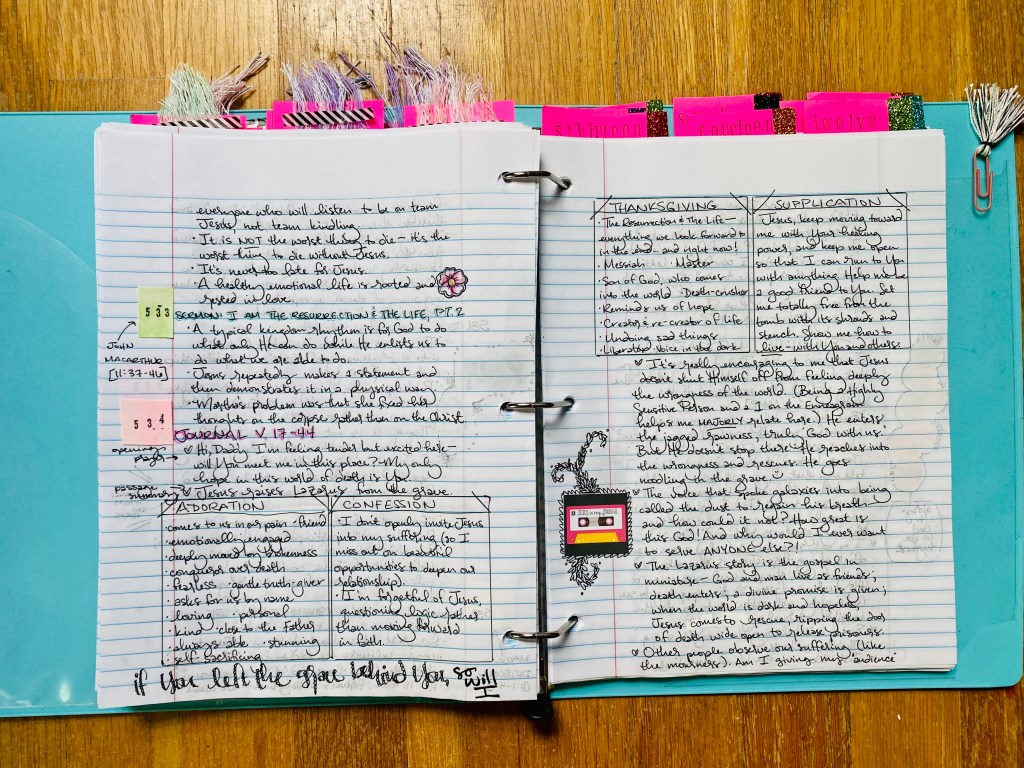 sthirteen
fourteen
twelve
everyone who will listen to be on team
Jesus, not team kindling.
· It is NOT the worst thing to die - it's the
worst thing to die without Jesus.
· It's never too late for Jesus.
· A healthy emotional life is rooted and
rested in love.
5 33
SERMON: I AM THE RESURRECTION & THE LIFE, PT. 2
JOHN
MACARTHUR
[11:37-46]
· A typical kingdom rhythm is for God to do
what only He can do while He enlists us to
do what we are able to do.
· Jesus repeatedly makes a statement and
then demonstrates it in a physical way.
· Martha's problem was that she fixed her
thoughts on the corpse rather than on the Christ.
5 3.4
JOURNAL V. 17-44
opening prayer
Hi, Daddy. I'm feeling tender but excited here -
will You meet me in this place? My only
hope in this world of death is You.
passage summary
Jesus raises Lazarus from the grave.
ADORATION
comes to us in our pain · friend
· emotionally engaged
· deeply moved by brokenness
· conqueror over death
· fearless · gentle truth-giver
· asks for us by name
· loving · personal
· kind · close to the Father
· always able · stunning
· self-sacrificing
CONFESSION
· I don't openly invite Jesus
into my suffering (so I
miss out on beautiful
opportunities to deepen our
relationship).
· I'm forgetful of Jesus,
questioning logic rather
than moving forward
in faith.
if You left the grave behind You, so will I
THANKSGIVING
· The Resurrection & The Life -
everything we look forward to
in the end... and right now!
· Messiah · Master
· Son of God, who comes
into the world · Death-crusher
· Reminds us of hope
· Creator & re-creator of life
· Undoing sad things
· Liberator · Voice in the dark
SUPPLICATION
Jesus, keep moving toward
me with Your healing
power, and keep me open
so that I can run to You
with anything. Help me be
a good friend to You. Set
me totally free from the
tomb with its shrouds and
stench. Show me how to
live - with You and others.
It's really encouraging to me that Jesus
doesn't shut Himself off from feeling deeply
the wrongness of the world. (Being a Highly
Sensitive Person and a 1 on the Enneagram
helps me MAJORLY relate here.) He enters
the jagged rawness, truly God with us.
But He doesn't stop there - He reaches into
the wrongness and rescues. He goes
noodling in the grave.
The voice that spoke galaxies into being
called the dust to regain his breath -
and how could it not? How great is
this God! And why would I ever want
to serve ANYONE else?!
The Lazarus story is the gospel in
miniature - God and man live as friends;
death enters; a divine promise is given;
when the world is dark and hopeless,
Jesus comes to rescue, ripping the door
of death wide open to release prisoners.
Other people observe our suffering (like
the mourners). Am I giving my audience